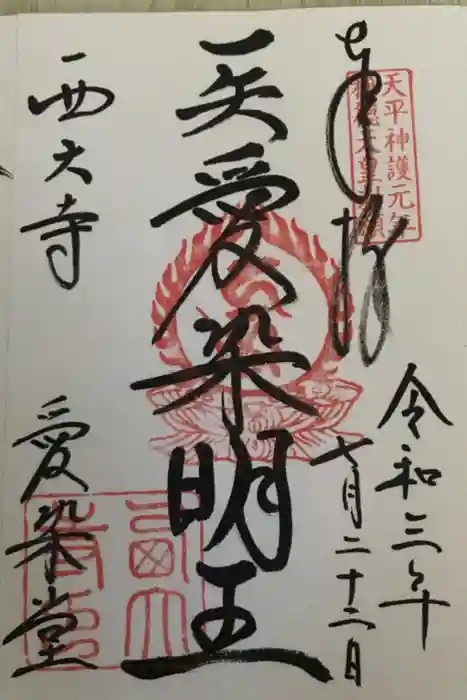 奉拝
天平神護元年
称徳天皇勅願
令和三年
七月二十二日
一矢愛染明王
西大寺
愛染堂